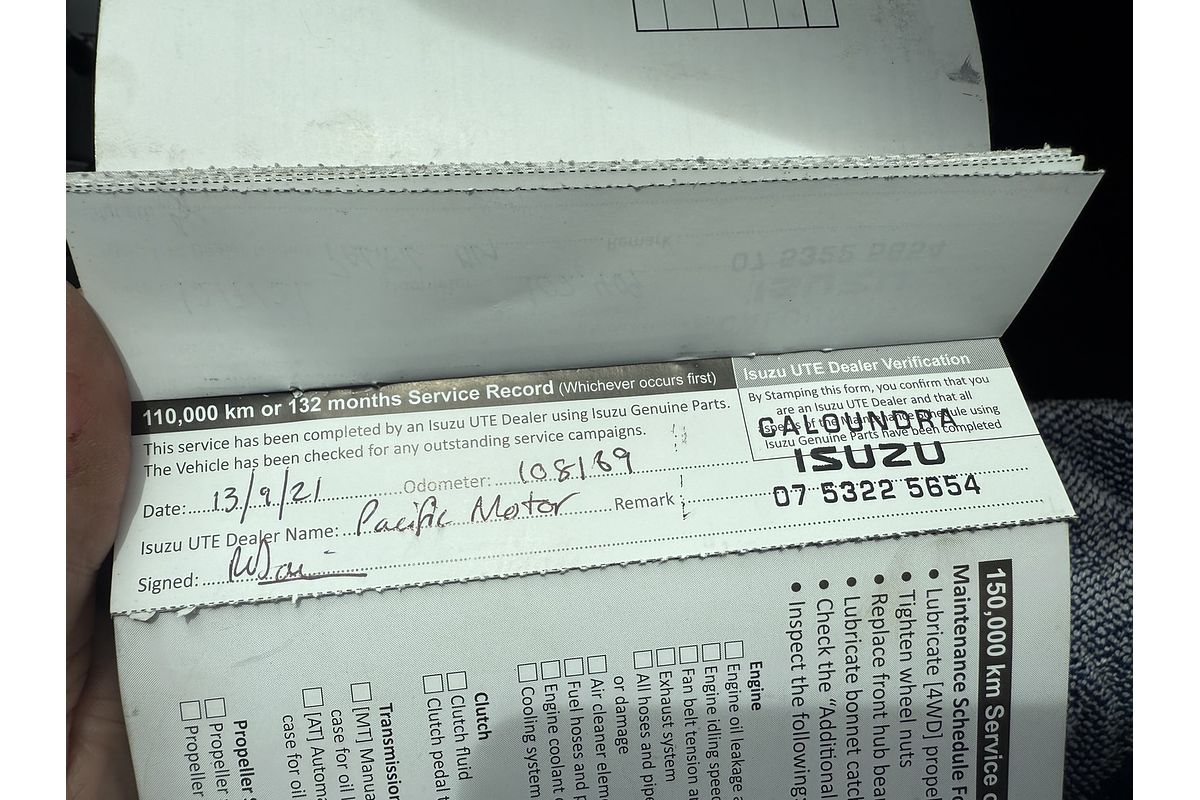 110,000 km or 132 months Service Record (Whichever occurs first)
This service has been completed by an Isuzu UTE Dealer using Isuzu Genuine Parts.
The Vehicle has been checked for any outstanding service campaigns.
Date: 13/9/21 Odometer: 108189
Isuzu UTE Dealer Name: Pacific Motor Remark :
Signed:
Isuzu UTE Dealer Verification
By Stamping this form, you confirm that you
are an Isuzu UTE Dealer and that all
of the Maintenance Schedule using
Isuzu Genuine Parts have been completed
CALOUNDRA
ISUZU
07 5322 5654
150,000 km Service
Maintenance Schedule
• Lubricate [4WD]
• Tighten wheel nuts
• Replace front hub
• Lubricate bonnet
• Check the "Additional
• Inspect the following:
Engine
Engine oil leakage
Engine idling
Fan belt tension
Exhaust system
All hoses and
or damage
Air cleaner
Fuel hoses and
Engine coolant
Cooling system
Clutch
Clutch fluid
Clutch pedal
[MT]
case for oil
[AT]
case for oil
Propeller
Propeller
Propeller